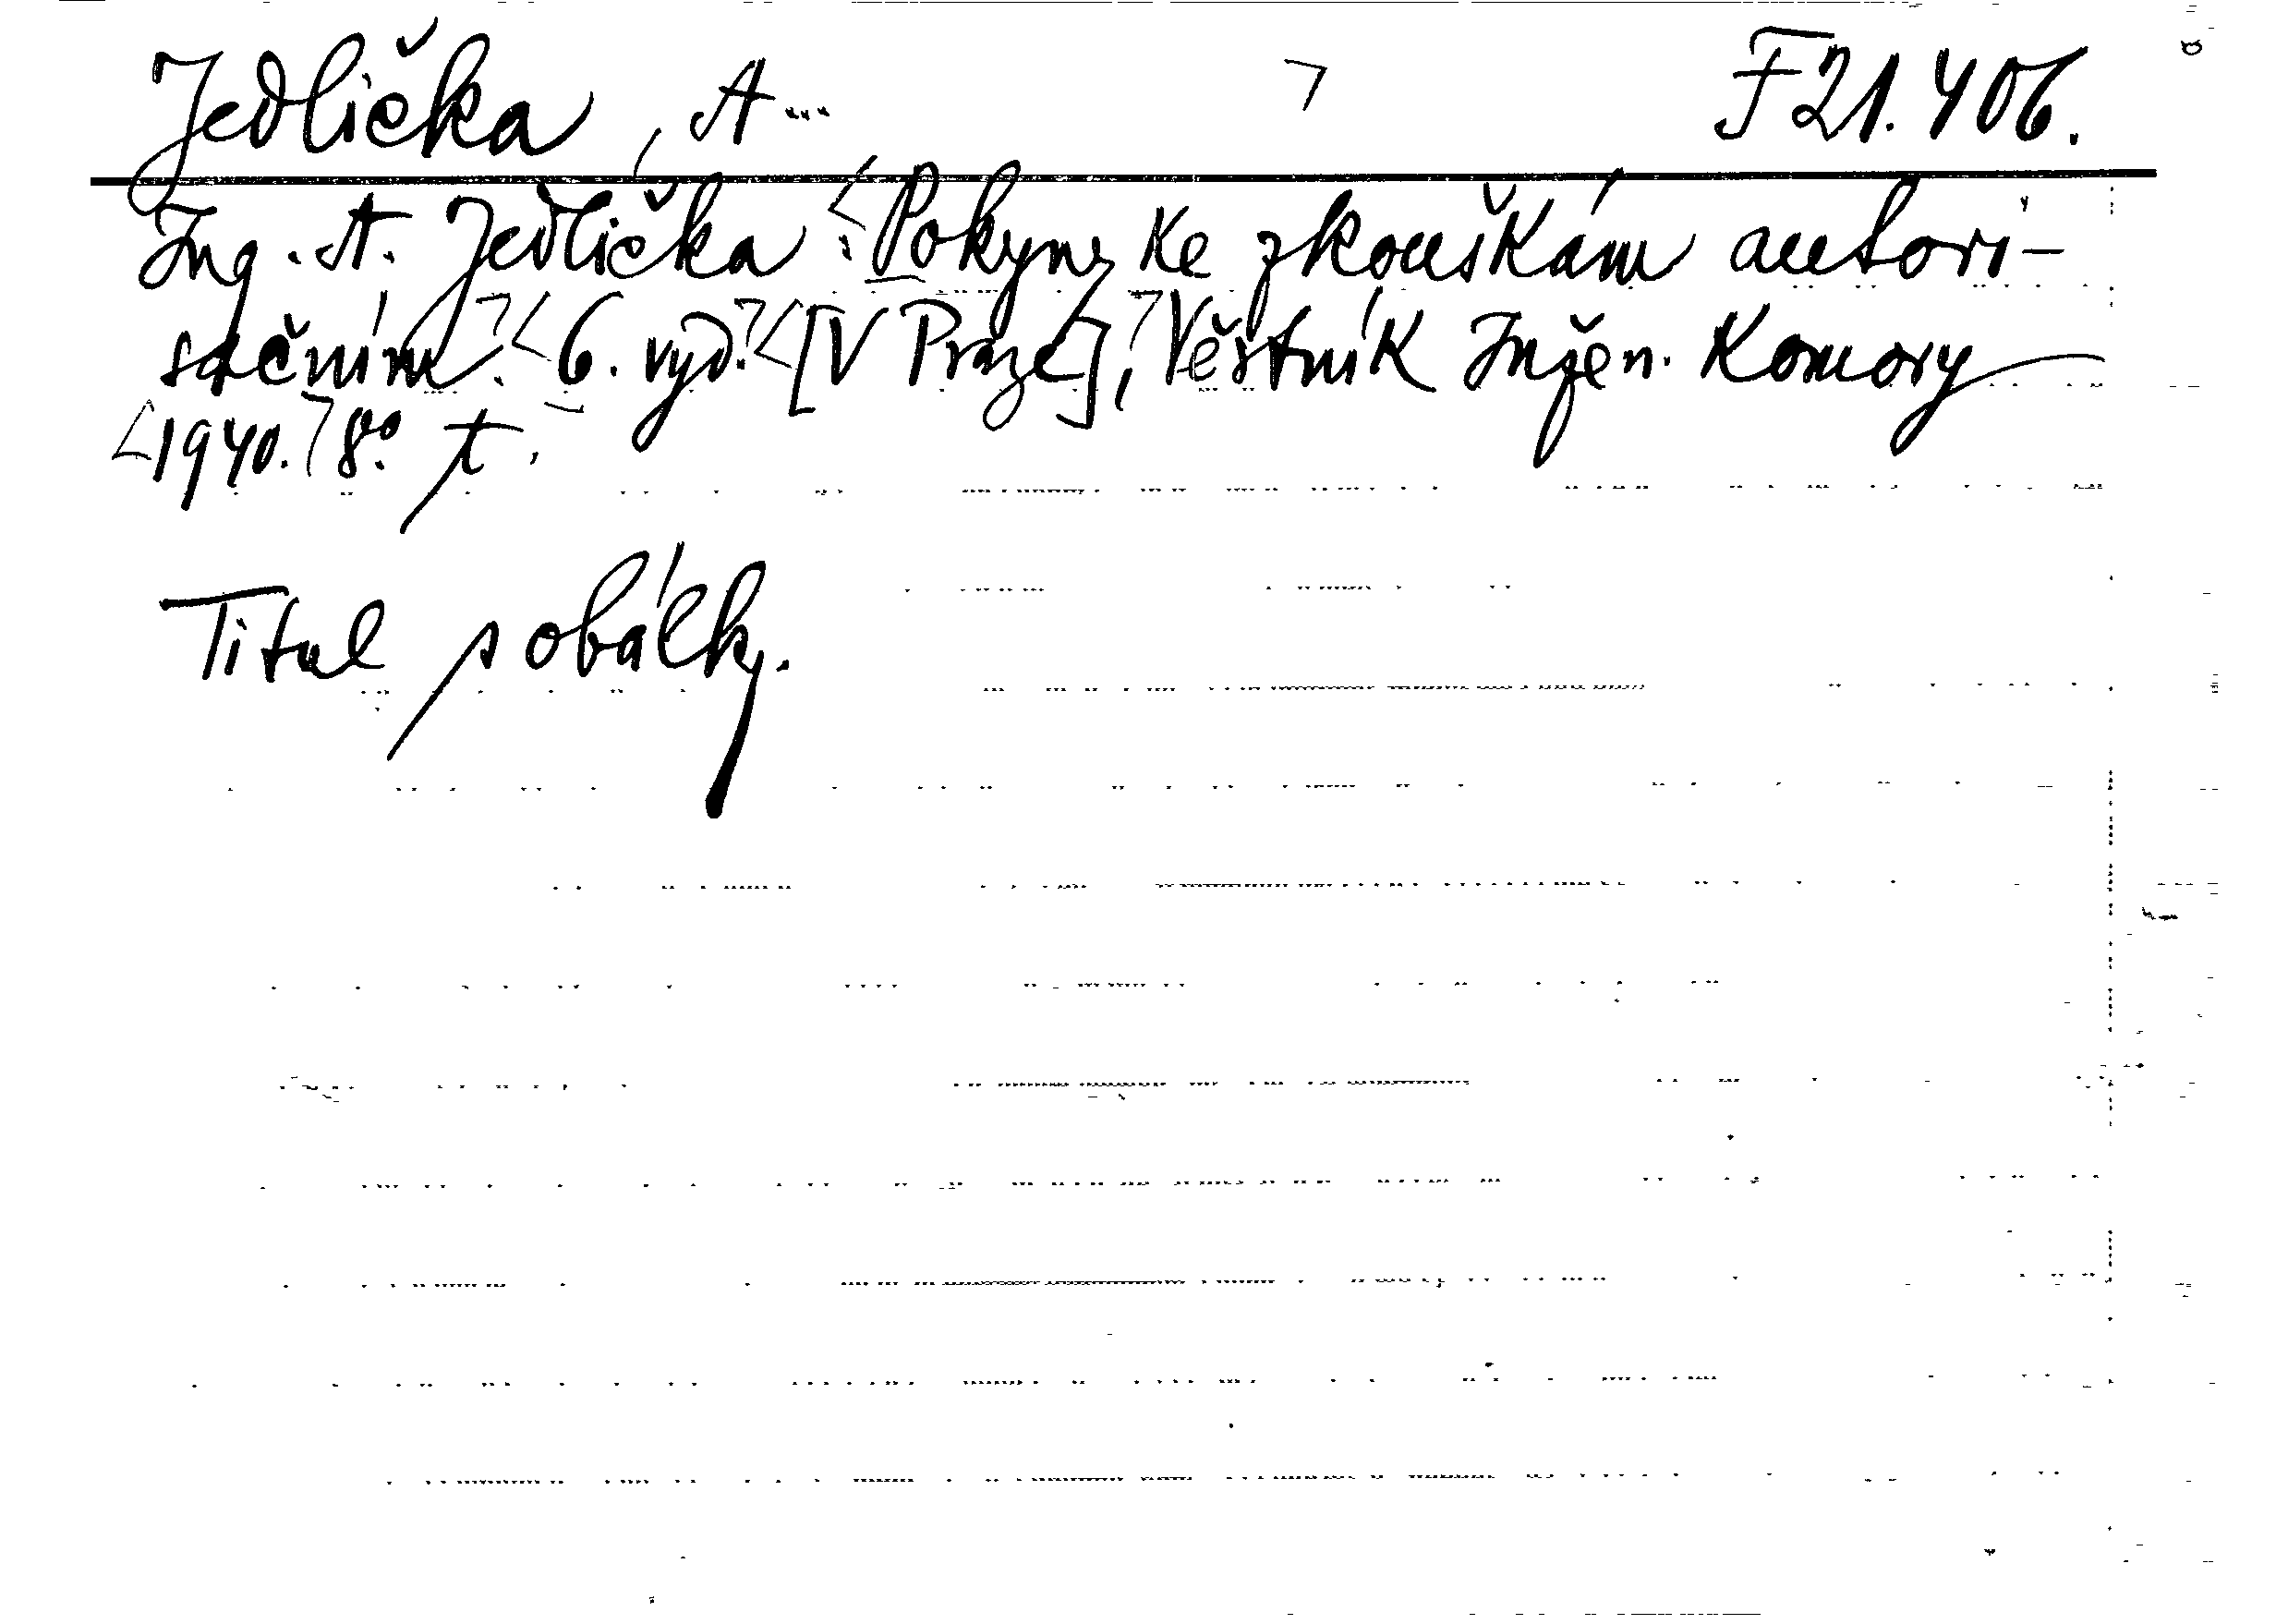 Jedlička, A... F 21.406.
Ing. A. Jedlička: Pokyny ke zkouškám autori-
sačním. 6. vyd. [V Praze], Věstník Inžen. Komory
1940. 8° t.
Titul s obálky.